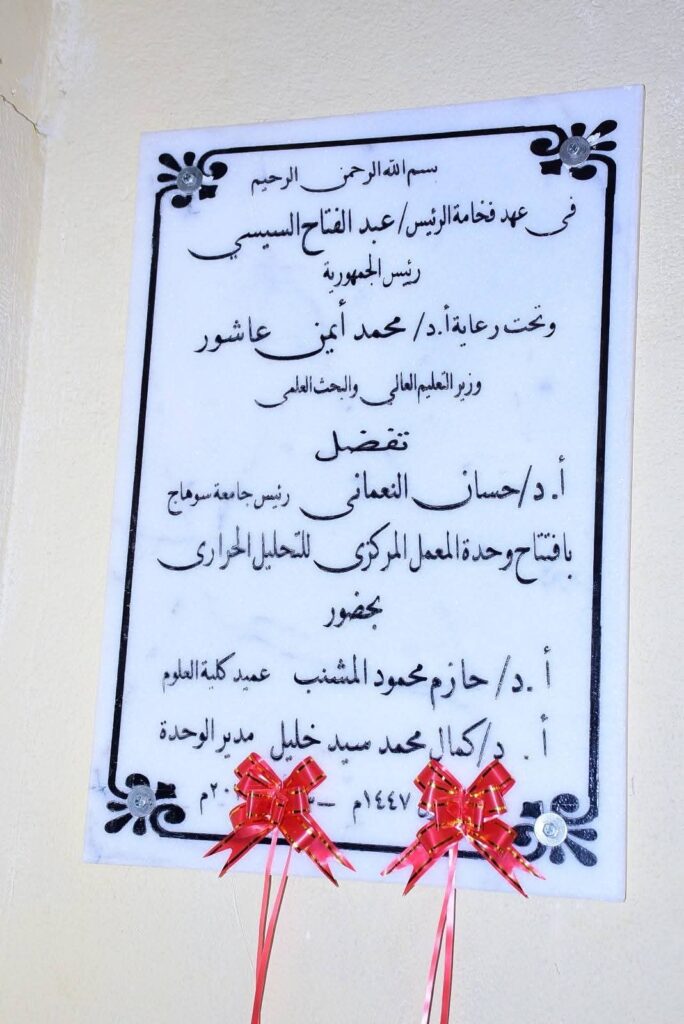 بسم الله الرحمن الرحيم
فى عهد فخامة الرئيس/ عبد الفتاح السيسي
رئيس الجمهورية
وتحت رعاية أ.د/ محمد أيمن عاشور
وزير التعليم العالي والبحث العلمى
تفضل
أ.د/ حسان النعمانى رئيس جامعة سوهاج
بافتتاح وحدة المعمل المركزى للتحليل الحرارى
بحضور
أ.د/ حازم محمود المشنب عميد كلية العلوم
أ.د/ كمال محمد سيد خليل مدير الوحدة
١٤٤٧م –